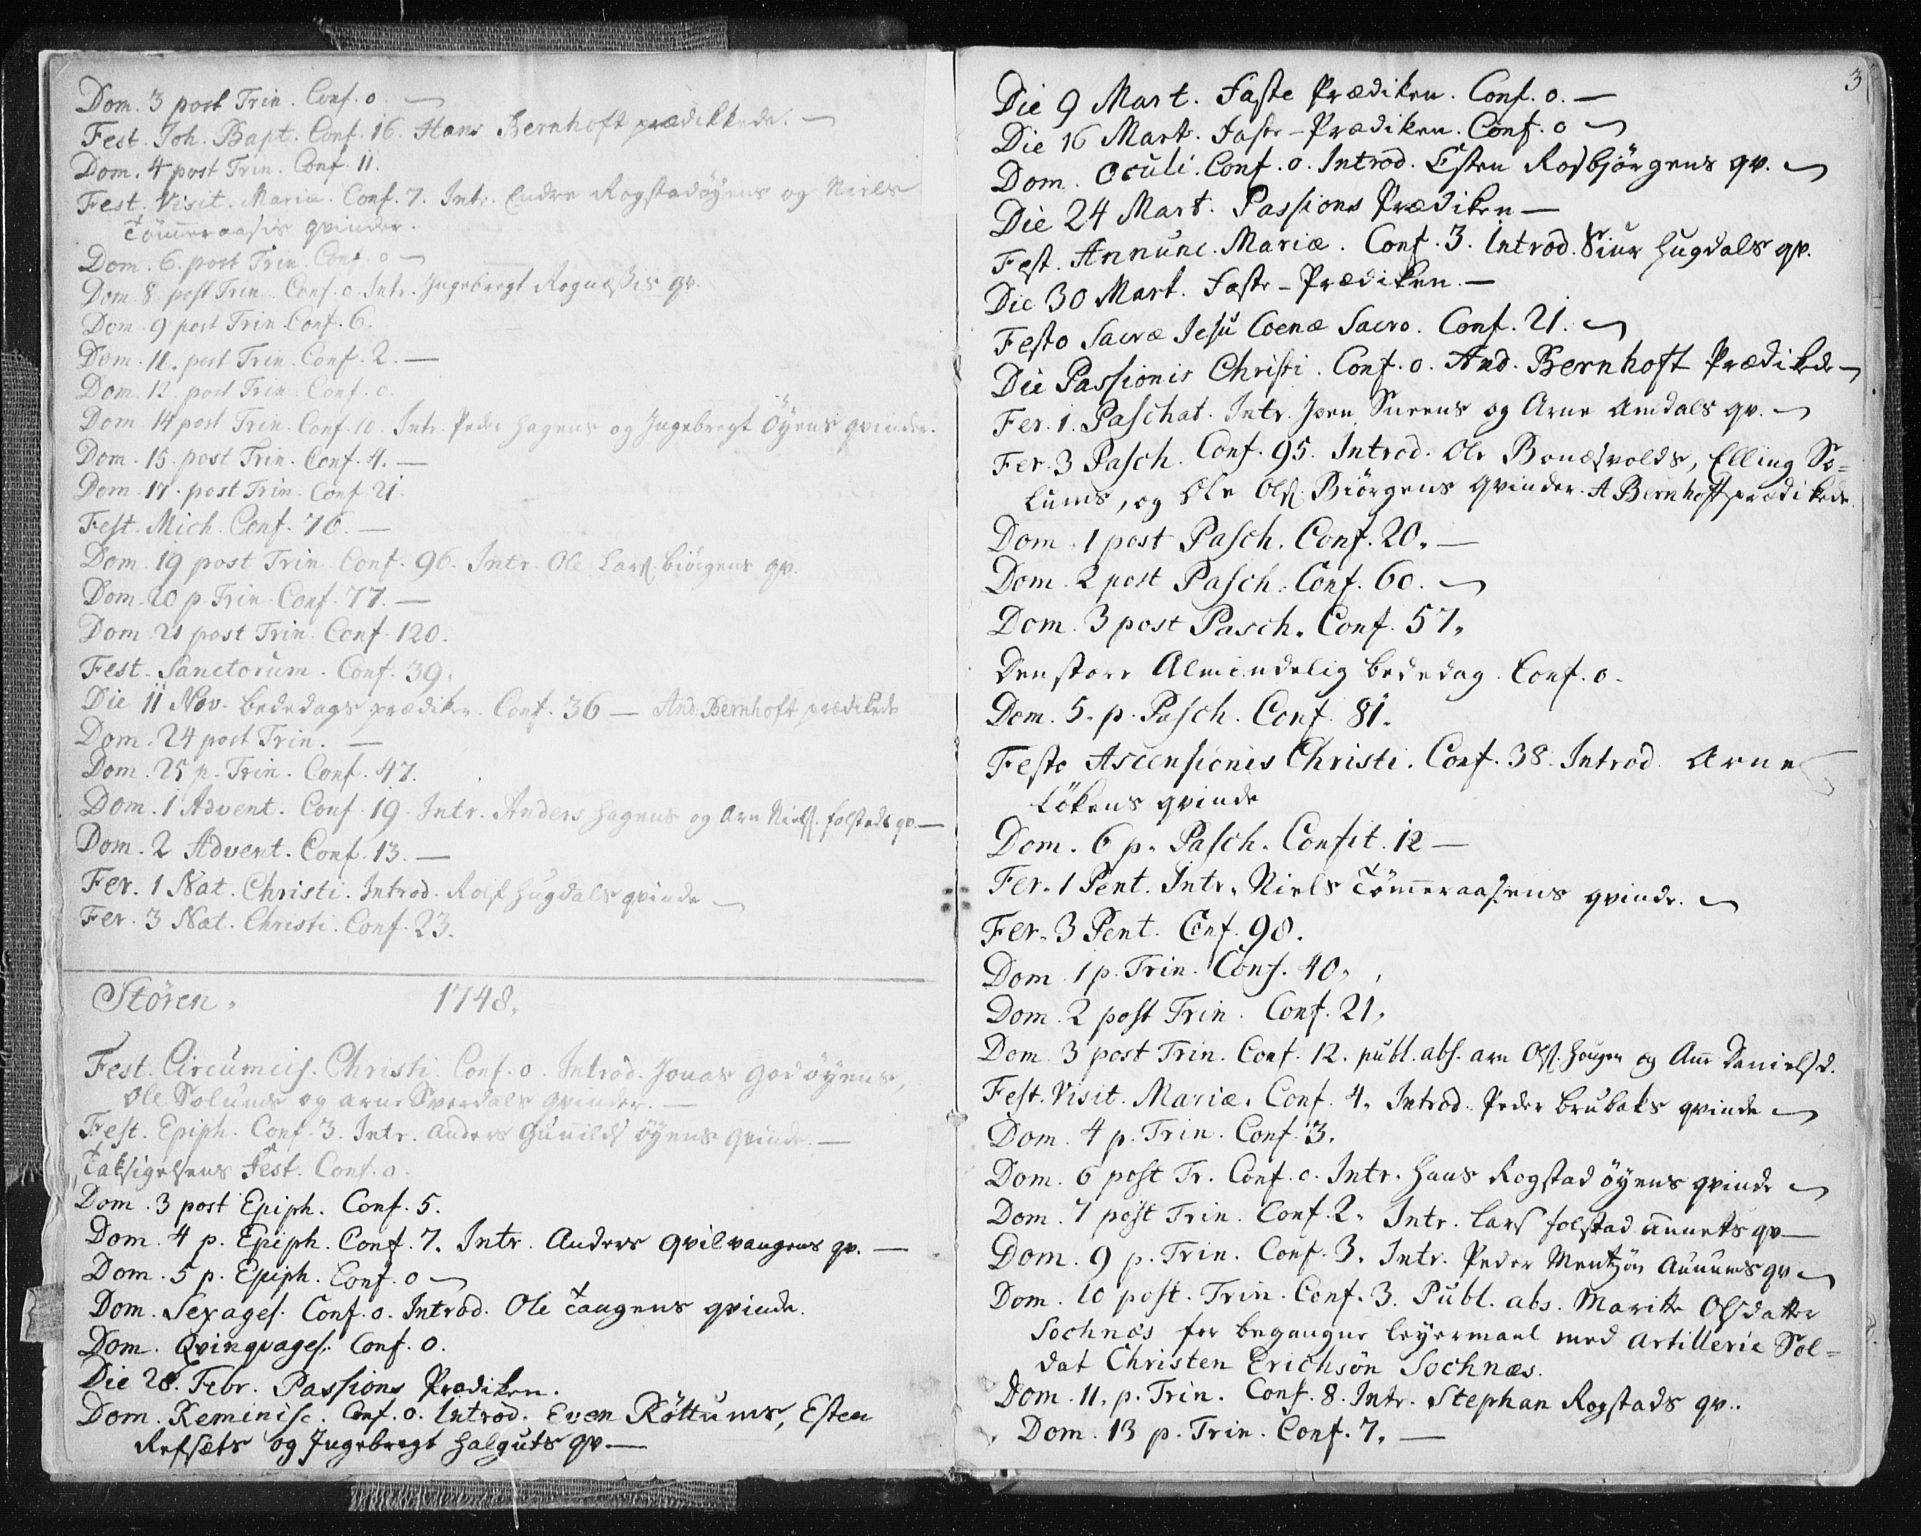 Dom. 3 post Trin. Conf. 0. —
Fest. Joh. Bapt. Conf. 16. Hans Bernhoft prædikkede. —
Dom. 4 post Trin. Conf. 11.
Fest. Visit. Mariæ. Conf. 7. Intr. Endre Rogstadøyens og Niels
Tømmeraasis qvinder.
Dom. 6. post Trin. Conf. 0 —
Dom. 8. post Trin. Conf. 0. Intr. Ingebregt Rognæssis qv.
Dom. 9 post Trin. Conf. 6.
Dom. 11. post Trin. Conf. 2. —
Dom. 12 post Trin. Conf. 0.
Dom. 14 post Trin. Conf. 10. Intr. Peder Hagens og Ingebregt Øyens qvinder.
Dom. 15. post Trin. Conf. 4. —
Dom. 17. post Trin. Conf. 21.
Fest. Mich. Conf. 76. —
Dom. 19 post Trin. Conf. 96. Intr. Ole Lars. biörgens qv.
Dom. 20 p. Trin. Conf. 77. —
Dom. 21 post Trin. Conf. 120.
Fest. Sanctorum. Conf. 39.
Die 11 Nov. bededags prædiken. Conf. 36 — And. Bernhoft prædikede
Dom. 24 post Trin. —
Dom. 25 p. Trin. Conf. 47.
Dom. 1 Advent. Conf. 19. Intr. Anders Hagens og Arn Niels. folstads qv. —
Dom. 2 Advent. Conf. 13. —
Fer. 1 Nat. Christi. Introd. Rolf Hugdals qvinde —
Fer. 3 Nat. Christi. Conf. 23.
Stören. 1748.
Fest. Circumcis. Christi. Conf. 0. Introd. Jonas Godøyens,
Ole Solums og Arne Sverdals qvinder. —
Fest. Epiph. Conf. 3. Intr. Anders Gunnilds øyens qvinde. —
Taksigelsens Fest. Conf. 0.
Dom. 3 post Epiph. Conf. 5.
Dom. 4 p. Epiph. Conf. 7. Intr. Anders Qvilvangens qv. —
Dom. 5 p. Epiph. Conf. 0 —
Dom. Sexages. Conf. 0. Introd. Ole Tangens qvinde.
Dom. Qvinqvages. Conf. 0.
Die 28. Febr. Passions Prædiken.
Dom. Reminisc. Conf. 0. Introd. Even Röttums, Esten
Refsæts og Ingebregt Halguts qv —
3
Die 9 Mart. Faste Prædiken. Conf. 0. —
Die 16 Mart. Faste-Prædiken. Conf. 0 —
Dom. Oculi. Conf. 0. Introd. Esten Rosbjørgens qv. —
Die 24 Mart. Passions Prædiken —
Fest. Annunc. Mariæ. Conf. 3. Introd. Siur Hugdals qv.
Die 30 Mart. Faste-Prædiken. —
Festo Sacræ Jesu Coenæ Sacro. Conf. 21. —
Die Passionis Christi. Conf. 0. And. Bernhoft Prædikede —
Fer. 1. Paschat. Intr. Joen Sneens og Arne Amdals qv. —
Fer. 3 Pasch. Conf. 95. Introd. Ole Bonæsvolds, Elling So=
lums, og Ole Ols. Biörgens qvinder. A Bernhoft prædikede.
Dom. 1 post Pasch. Conf. 20. —
Dom. 2 post Pasch. Conf. 60. —
Dom. 3 post Pasch. Conf. 57.
Den store Almindelig bededag. Conf. 0.
Dom. 5. p. Pasch. Conf. 81.
Festo Ascensionis Christi. Conf. 38. Introd. Arne
Løkens qvinde
Dom. 6 p. Pasch. Confit. 12 —
Fer. 1 Pent. Intr. Niels Tømmeraasens qvinde. —
Fer. 3 Pent. Conf. 98.
Dom. 1 p. Trin. Conf. 40.
Dom. 2 post Trin. Conf. 21.
Dom. 3 post Trin. Conf. 12. publ. abs. arn Ols. Hougen og Ane Danielsd.
Fest. Visit. Mariæ. Conf. 4. Introd. Peder brubaks qvinde —
Dom. 4 p. Trin. Conf. 3.
Dom. 6 post Tr. Conf. 0. Intr. Hans Rogstad øyens qvinde —
Dom. 7 post Trin. Conf. 2. Intr. Lars folstad annets qv —
Dom. 9 p. Trin. Conf. 3. Intr. Peder Mentzøn Aunums qv —
Dom. 10 post. Trin. Conf. 3. Publ. abs. Maritte Olsdatter
Sochnæs for begangne leyermaal med Artillerie Sol=
dat Christen Erichsön Sochnæs.
Dom. 11. p. Trin. Conf. 8. Intr. Stephan Rogstads qv.
Dom. 13 p. Trin. Conf. 7. —